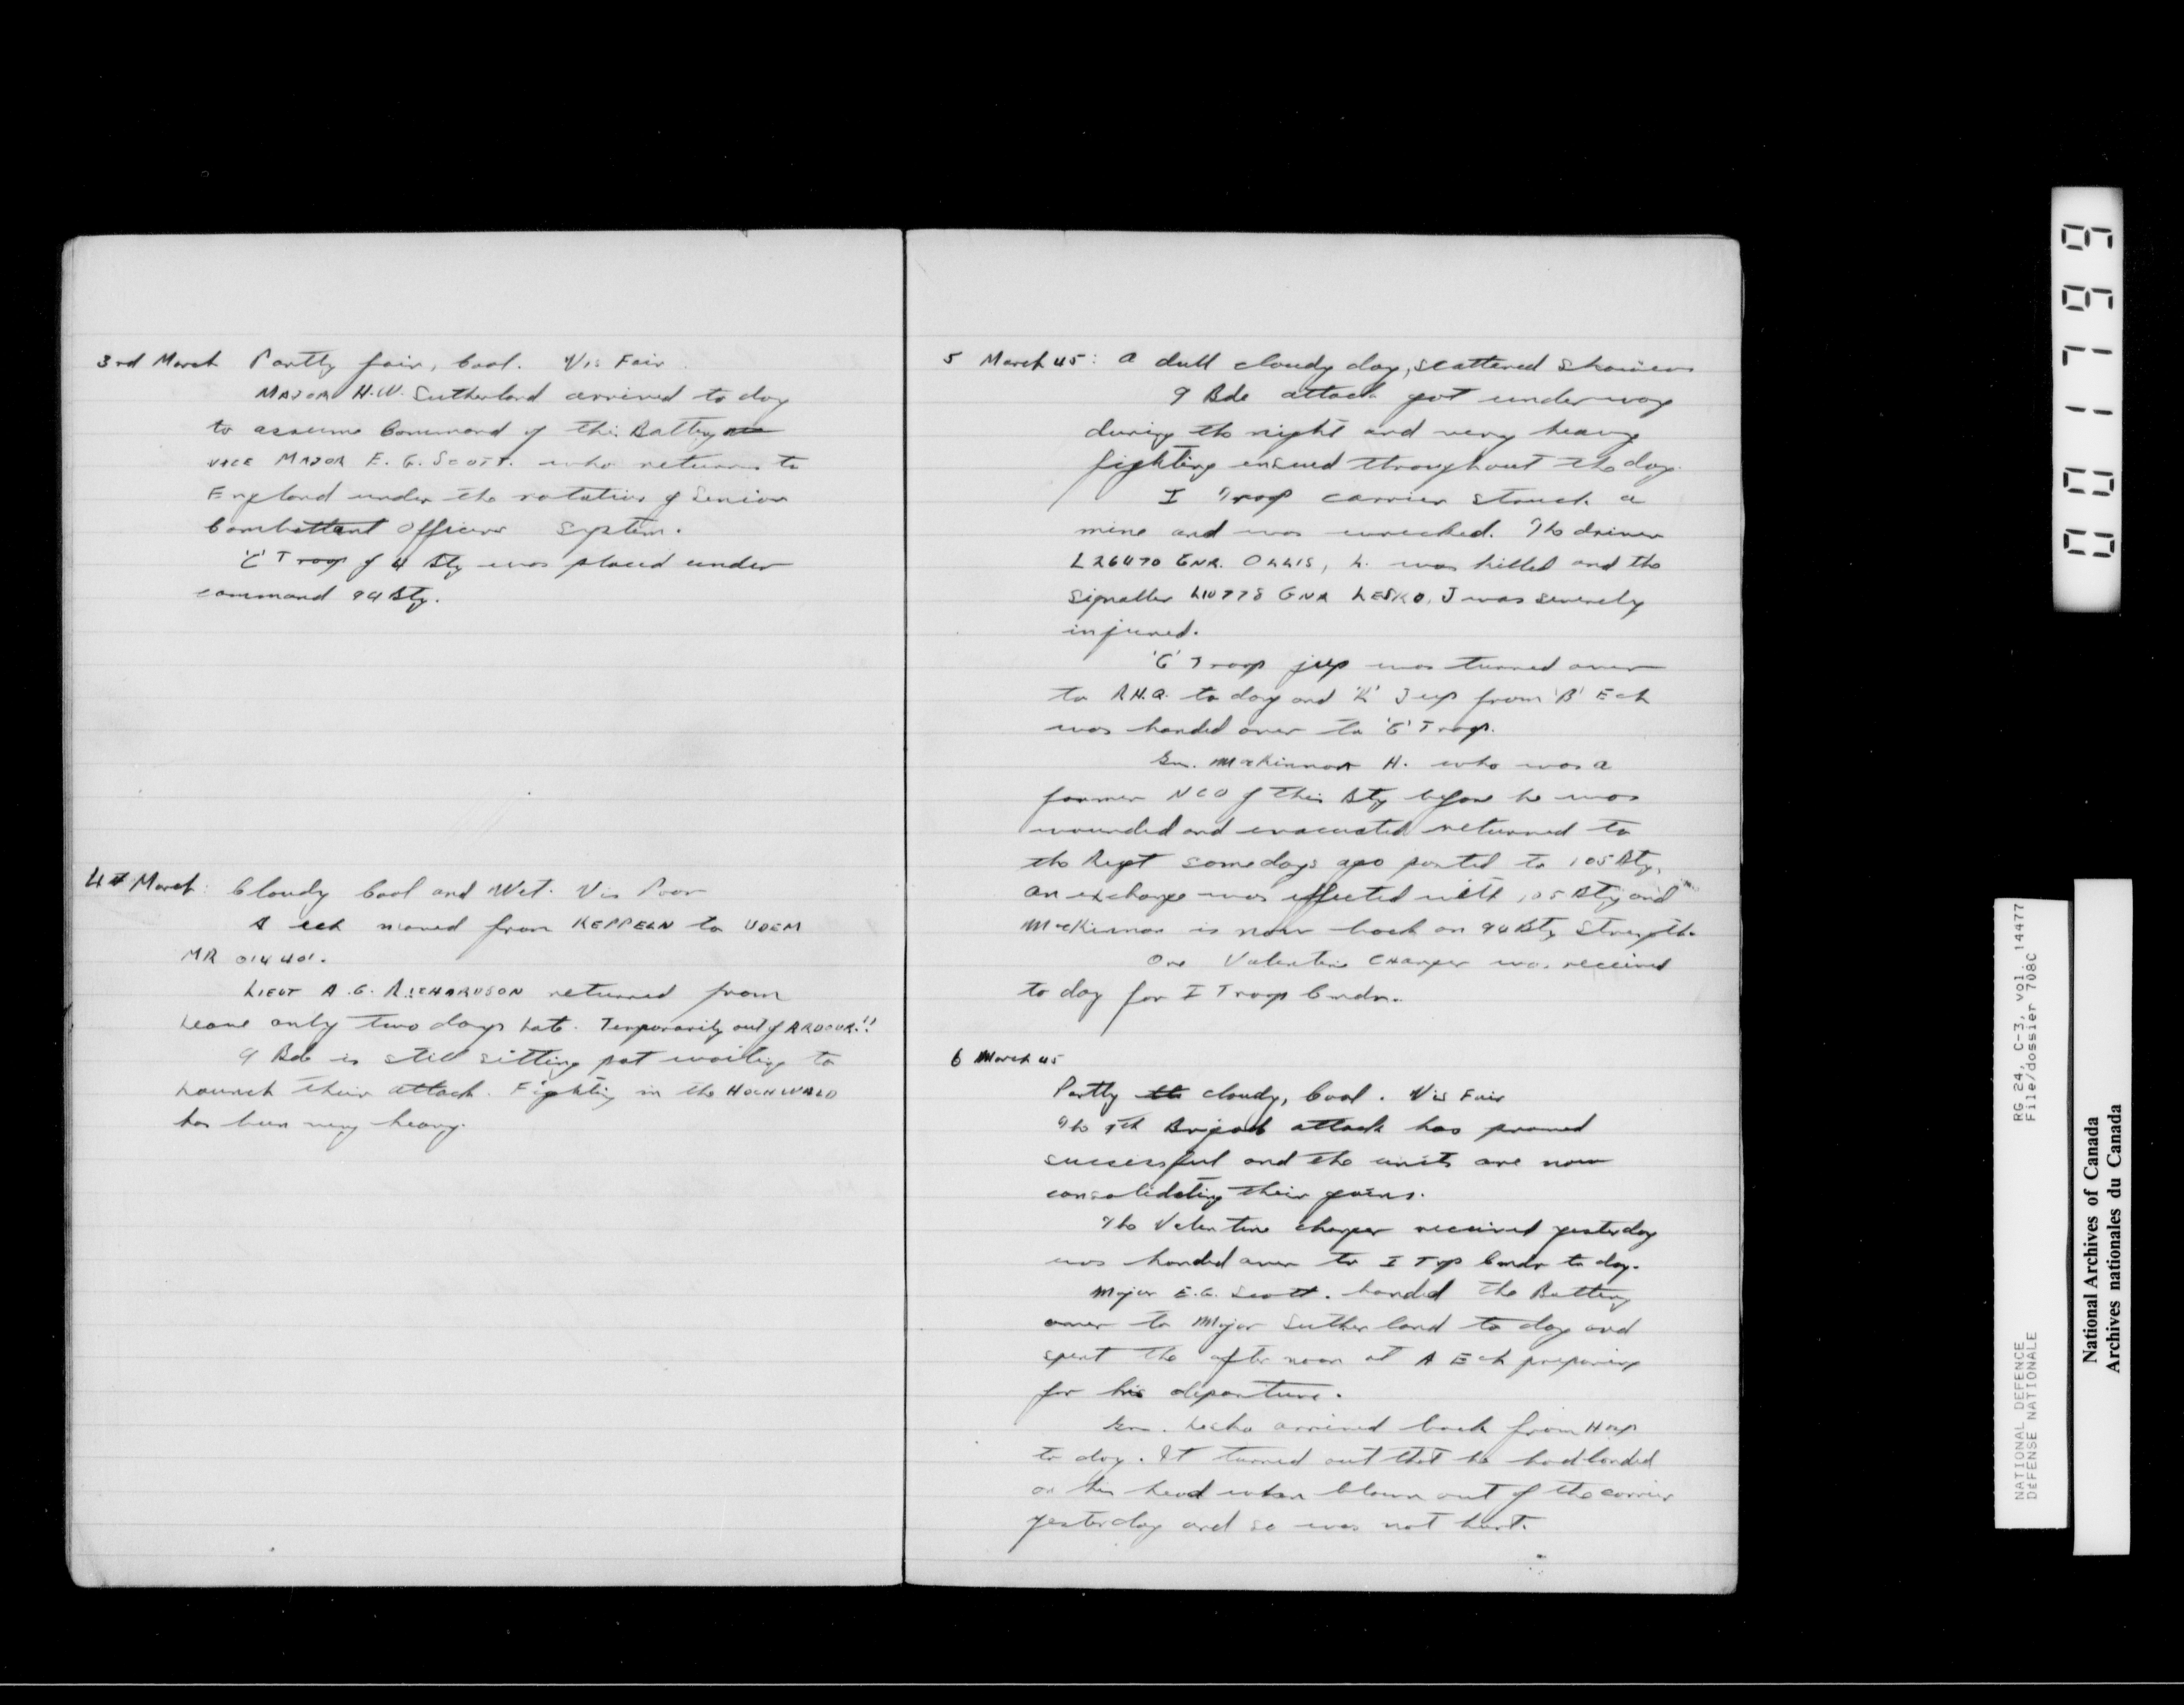 3rd March Partly fair, Cool. Vis Fair.
MAJOR H.W. Sutherland arrived to day
to assume Command of this Battery
VICE MAJOR E. G. SCOTT. who returns to
England under the rotation of Senior
Combattant Officers System.
'C' Troop of 4 Bty was placed under
command 94 Bty.
4th March: Cloudy Cool and Wet. Vis Poor
A ech moved from KEPPELN to UDEM
MR 014401.
LIEUT A.G. RICHARDSON returned from
Leave only two days late. Temporarily out of ARDOUR.!!
9 Bde is still sitting pat waiting to
Launch their attack. Fighting in the HOCHWALD
has been very heavy.
5 March 45: A dull cloudy day, scattered showers
9 Bde attack got underway
during the night and very heavy
fighting ensued throughout the day.
I Troop carrier struck a
mine and was wrecked. The driver
L26470 GNR. OLLIS, L. was killed and the
Signaller GNR LESKO, J was severely
injured.
'G' Troop jeep was turned over
to R.H.Q. to day and 'K' Jeep from 'B' Ech
was handed over to 'G' Troop.
Gnr. MacKinnon H. who was a
former NCO of this Bty before he was
wounded and evacuated returned to
the Regt some days ago posted to 105 Bty,
an exchange was effected with 105 Bty and
MacKinnon is now back on 94 Bty Strength.
One Valentine Charger was received
to day for I Troop Cmdr.
6 March 45
Partly cloudy, Cool. Vis Fair
The 9th Brigade attack has proved
successful and the units are now
consolidating their gains.
The Valentine charger received yesterday
was handed over to I Trp Cmdr to day.
Major E.G. Scott. handed the Battery
over to Major Sutherland to day and
spent the afternoon at A Ech preparing
for his departure.
Gnr. Lesko arrived back from Hosp
to day. It turned out that he had landed
on his head when blown out of the carrier
yesterday and so was not hurt.
0011799
RG 24, C-3, vol. 14477
File/dossier 708C
NATIONAL DEFENCE
DEFENSE NATIONALE
National Archives of Canada
Archives nationales du Canada